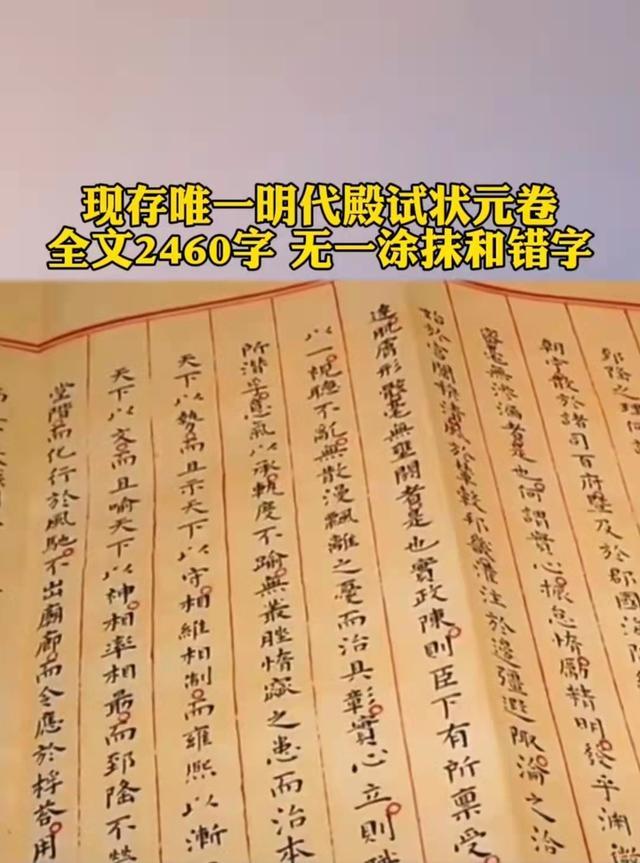 现存唯一明代殿试状元卷
全文2460字 无一涂抹和错字
郅隆之理
朝宁散於诸司百府暨及於郡國海隅
容毫無滲漏者是也何謂實心振怠惰勵精明發乎淵
始於宮闈條達風於輦轂邦畿灌注於邊疆遐陬淪之洽
達肌膚形骸毫無壅閼者是也實政陳則臣下有所稟受
以一視聽不亂無散漫飄離之憂而治具彰實心立則職
所潜乎意氣以承軌度不踰無叢脞惰窳之患而治本
天下以勢而且示天下以守相維相制而雍熙以漸
天下以文而且喻天下以神相率相最而郅隆不
堂階而化行於風馳不出廟廊而令應於桴荅用